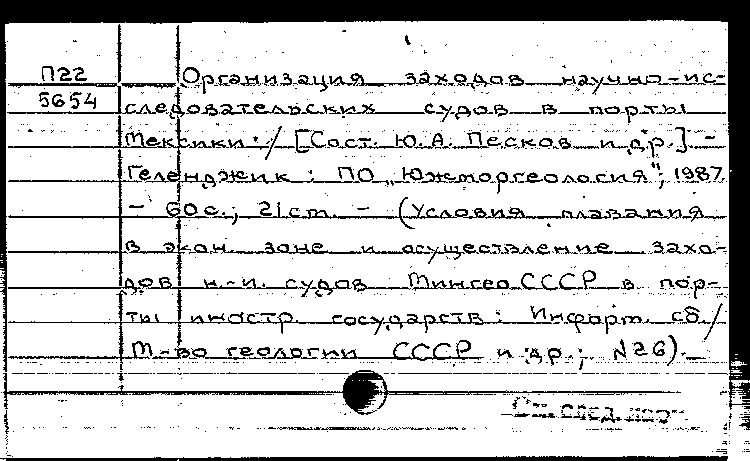 П22
5654
Организация заходов научно-ис-
следовательских судов в порты
Мексики / [Сост. Ю.А. Песков и др.] -
Геленджик : ПО "Южморгеология", 1987.
- 60 с.; 21 cm. - (Условия плавания
в экон. зоне и осуществление захо-
дов н.-и. судов Мингео СССР в пор-
ты иностр. государств : Информ. сб. /
М-во геологии СССР и др.; N26). —
См. след. кар